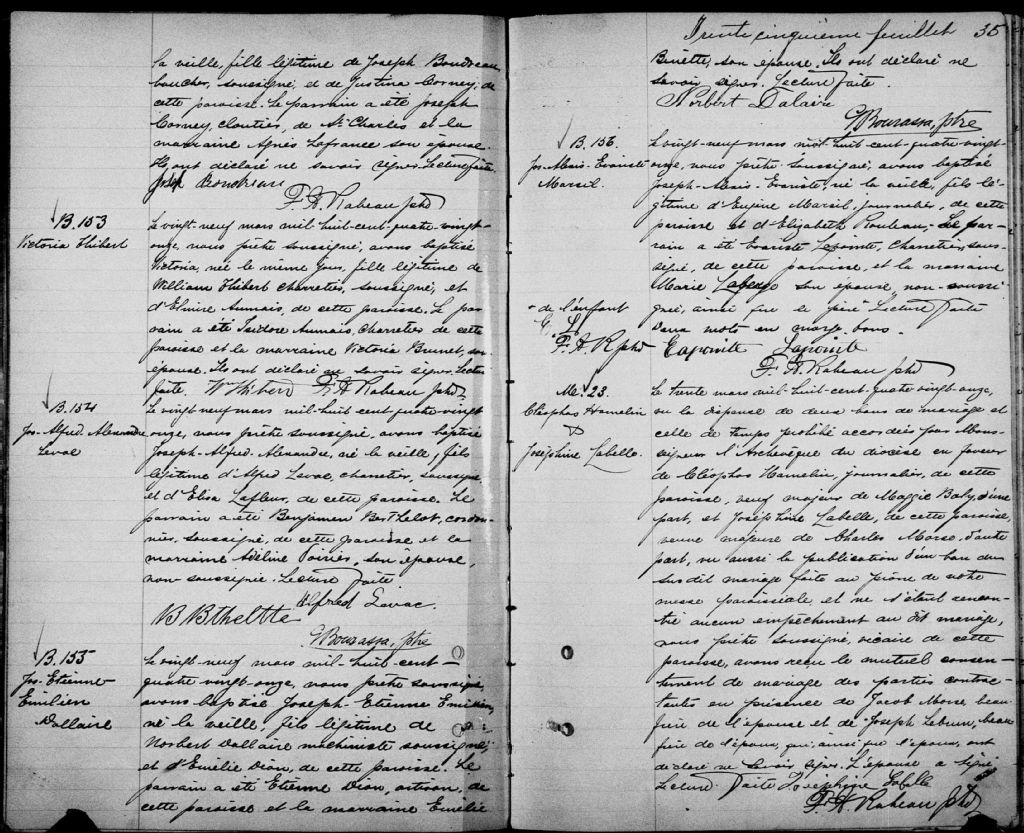 la veille, fille légitime de Joseph Boudreau
boucher, soussigné, et de Justina Corney, de
cette paroisse. Le parrain a été Joseph
Corney, cloutier, de St Charles et la
marraine Agnès Lafrance son épouse.
Ils ont déclaré ne savoir signer. Lecture faite.
Joseph Boudreau
F. A. Rabeau ptre
B. 153
Victoria Hibert
Le vingt-neuf mars mil-huit-cent-quatre-vingt-
onze, nous prêtre soussigné, avons baptisé
Victoria, née le même jour, fille légitime de
William Hibert charretier, soussigné, et
d'Elmire Aumais, de cette paroisse. Le par-
rain a été Isidore Aumais, charretier de cette
paroisse et la marraine Victoria Brunet, son
épouse. Ils ont déclaré ne savoir signer. Lecture
faite. Wm Hibert F. A. Rabeau ptre
B. 154
Jos. Alfred. Alexandre
Levac
Le vingt-neuf mars mil-huit-cent-quatre vingt
onze, nous prêtre soussigné, avons baptisé
Joseph-Alfred-Alexandre, né la veille, fils
légitime d'Alfred Levac, charretier, soussigné
et d'Elisa Lafleur, de cette paroisse. Le
parrain a été Benjamin Berthelot, cordon-
nier, soussigné, de cette paroisse et la
marraine Adéline Poirier, son épouse,
non-soussignée. Lecture faite.
Alfred Levac.
B Btheltte
G Bourassa, ptre
B. 155
Jos. Etienne-
Emilien
Dallaire
Le vingt-neuf mars mil-huit-cent-
quatre vingt-onze, nous prêtre soussigné,
avons baptisé Joseph-Etienne Emilien,
né la veille, fils légitime de
Norbert Dallaire machiniste soussigné,
et d'Emélie Dion, de cette paroisse. Le
parrain a été Etienne Dion, de
cette paroisse et la marraine Emélie
Trente cinquième feuillet 35
Binette, son épouse. Ils ont déclaré ne
savoir signer. Lecture faite.
Norbert Dalaire
G Bourassa, ptre
B. 156.
Jos. Alexis-Evariste
Marsil.
Le vingt-neuf mars mil huit-cent-quatre-vingt-
onze, nous prêtre soussigné, avons baptisé
Joseph-Alexis-Evariste, né la veille, fils lé-
gitime d'Eugène Marsil, journalier, de cette
paroisse et d'Elizabeth Rouleau. Le par-
rain a été Evariste Lapointe, charretier, sous-
signé, de cette paroisse, et la marraine
Marie son épouse non-soussi-
gnée, ainsi que le père + Lecture faite
Deux mots en marge bons.
+ de l'enfant
E. L.
F. A. R ptre
E Lapointe Lapointe
F. A. Rabeau ptre
M. 23.
Cléophas Hamelin
&
Joséphine Labelle.
Le trente mars mil-huit-cent-quatre vingt-onze,
vu la dispense de deux bans de mariage et
celle de temps prohibé accordées par Mon-
seigneur l'Archevêque du diocèse en faveur
de Cléophas Hamelin, journalier, de cette
paroisse, veuf majeur de Maggie Baly, d'une
part, et Joséphine Labelle, de cette paroisse,
veuve majeure de Charles Morse, d'autre
part, vu aussi la publication d'un ban du
susdit mariage faite au prône de notre
messe paroissiale, et ne s'étant rencon-
tré aucun empêchement au dit mariage,
nous prêtre soussigné, vicaire de cette
paroisse, avons reçu le mutuel consen-
tement de mariage des parties contrac-
tantes en présence de Jacob Morse, beau-
frère de l'épouse et de Joseph Lebrun, beau
frère de l'époux, qui, ainsi que l'époux, ont
déclaré ne savoir signer. L'épouse a signé.
Lecture faite Joséphine Labelle
F. A. Rabeau ptre